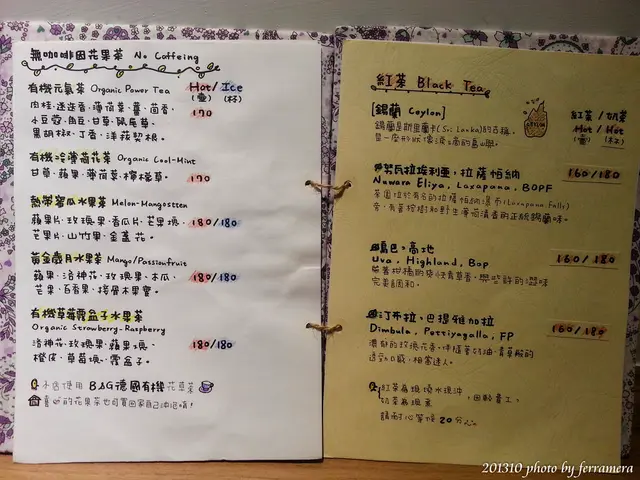 無咖啡因花果茶 No Caffeing
有機元氣茶 Organic Power Tea Hot/Ice
(壺) (杯)
肉桂、迷迭香、薄荷葉、薑、茴香、
小豆蔻、角豆、甘草、鼠尾草、
黑胡椒、丁香、洋菊苣根。
170
有機冷薄荷花茶 Organic Cool-Mint
甘草、蘋果、薄荷葉、檸檬草。 170
熱帶蜜瓜水果茶 Melon-Mangostten
蘋果片、玫瑰果、香瓜片、芒果塊、
芒果片、山竹果、金盞花。
180/180
黃金歲月水果茶 Mango/Passionfruit
蘋果、洛神花、玫瑰果、木瓜、
芒果、百香果、
180/180
有機草莓覆盆子水果茶
Organic Strawberry-Raspberry
洛神花、玫瑰果、蘋果塊、
橙皮、草莓塊、覆盆子。
180/180
小店使用 BAG德國有機花草茶
喜心的花果茶也可買回家自己沖泡唷!
紅茶 Black Tea
[錫蘭 Ceylon]
錫蘭是斯里蘭卡(Sri Lanka)的古稱。
是一座形狀像淚滴的高山島。
CEYLON
紅茶/奶茶
Hot/Hot
(壺) (杯)
努瓦拉埃利亞, 拉薩帕納
Nuwara Eliya, Laxapana, BOPF
160/180
茶園位於有名的拉薩帕納瀑布(Laxapana Falls)
旁,有著桉樹和野生薄荷清香的正統錫蘭味。
烏巴, 高地
Uva, Highland, Bop
160/180
帶著柑橘的爽快青草香,與些許的澀味
完美調和。
汀布拉, 巴提雅加拉
Dimbula, Pattiyagalla, FP
160/180
濃郁的玫瑰花香,伴隨著奶油、青草般的
迷人。
紅茶為現燒水現沖
奶茶為現煮
,因輕費工,
請耐心等候20分。
201310 photo by ferramera